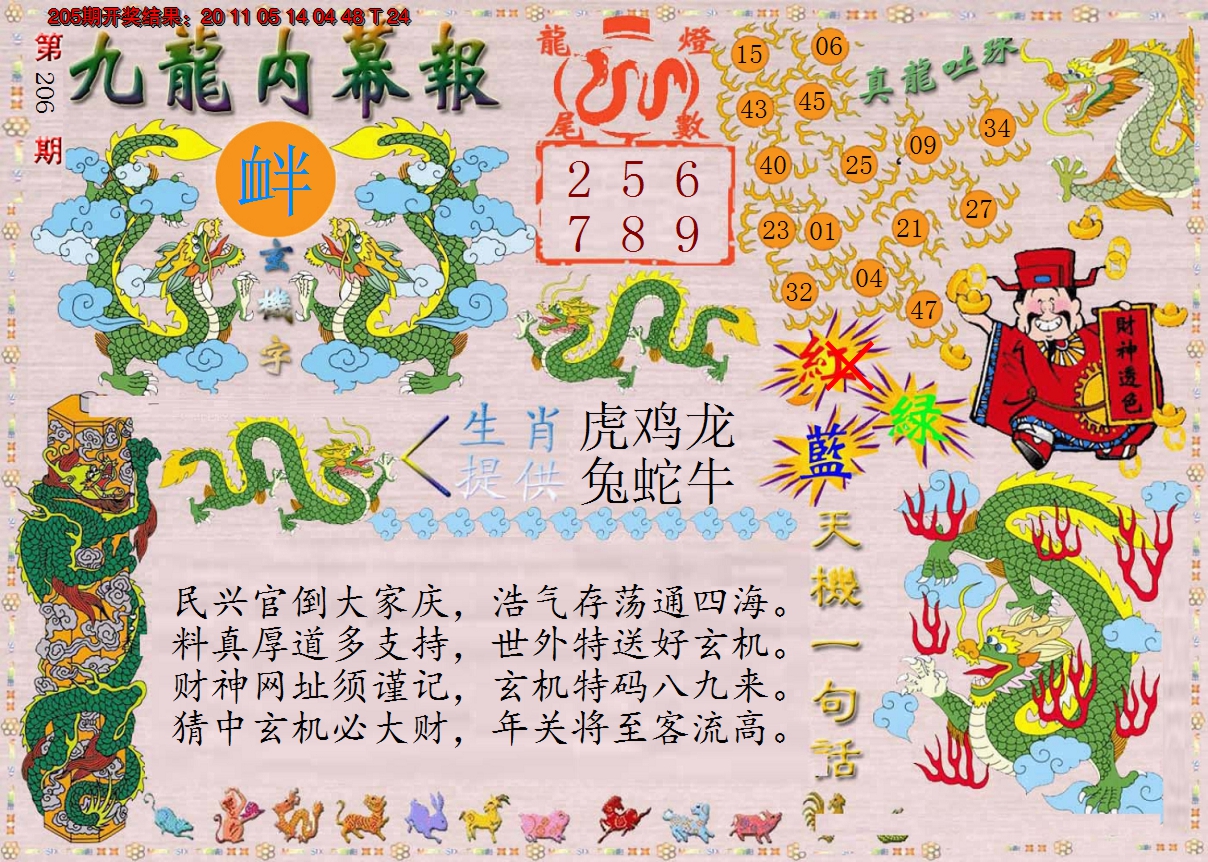 205期开奖结果：20 11 05 14 04 48 T 24
第206期
九龍内幕報
衅
玄機字
龍燈尾數
2 5 6
7 8 9
真龍吐珠
15 06
43 45
40 25 09 34
23 01 21 27
32 04 47
財神透色
紅
綠
藍
生肖提供
虎鸡龙
兔蛇牛
天機一句话
民兴官倒大家庆，浩气存荡通四海。
料真厚道多支持，世外特送好玄机。
财神网址须谨记，玄机特码八九来。
猜中玄机必大财，年关将至客流高。